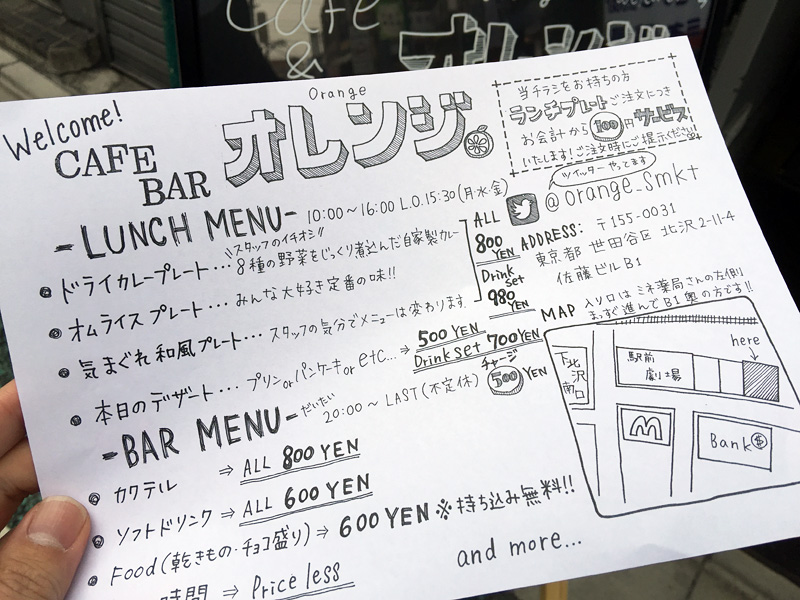 Cafe
&
オレンジ
Welcome!
CAFE
BAR
Orange
オレンジ
当チラシをお持ちの方
ランチプレートご注文につき
お会計から100円サービス
いたします!ご注文時にご提示ください
ツイッターやってます
@orange_smkt
-LUNCH MENU- 10:00～16:00 L.O.15:30(月水金)
\\スタッフのイチオシ//
ドライカレープレート…8種の野菜をじっくり煮込んだ自家製カレー
オムライスプレート…みんな大好き定番の味!!
気まぐれ和風プレート…スタッフの気分でメニューは変わります.
ALL
800
YEN
Drink
set
980
YEN
本日のデザート…プリンorパンケーキor etc...⇒ 500 YEN
Drink set 700 YEN
ADDRESS: 〒155-0031
東京都 世田谷区 北沢2-11-4
佐藤ビルB1
MAP 入り口はミネ薬局さんの左側
まっすぐ進んでB1奥の方です!!
here
下北沢南口
駅前
劇場
M
Bank $
-BAR MENU- だいたい 20:00～LAST(不定休)
チャージ
500 YEN
カクテル ⇒ ALL 800 YEN
ソフトドリンク⇒ ALL 600 YEN
Food(乾きもの・チョコ盛り)⇒ 600 YEN ※持ち込み無料!!
時間 ⇒ Price less
and more...